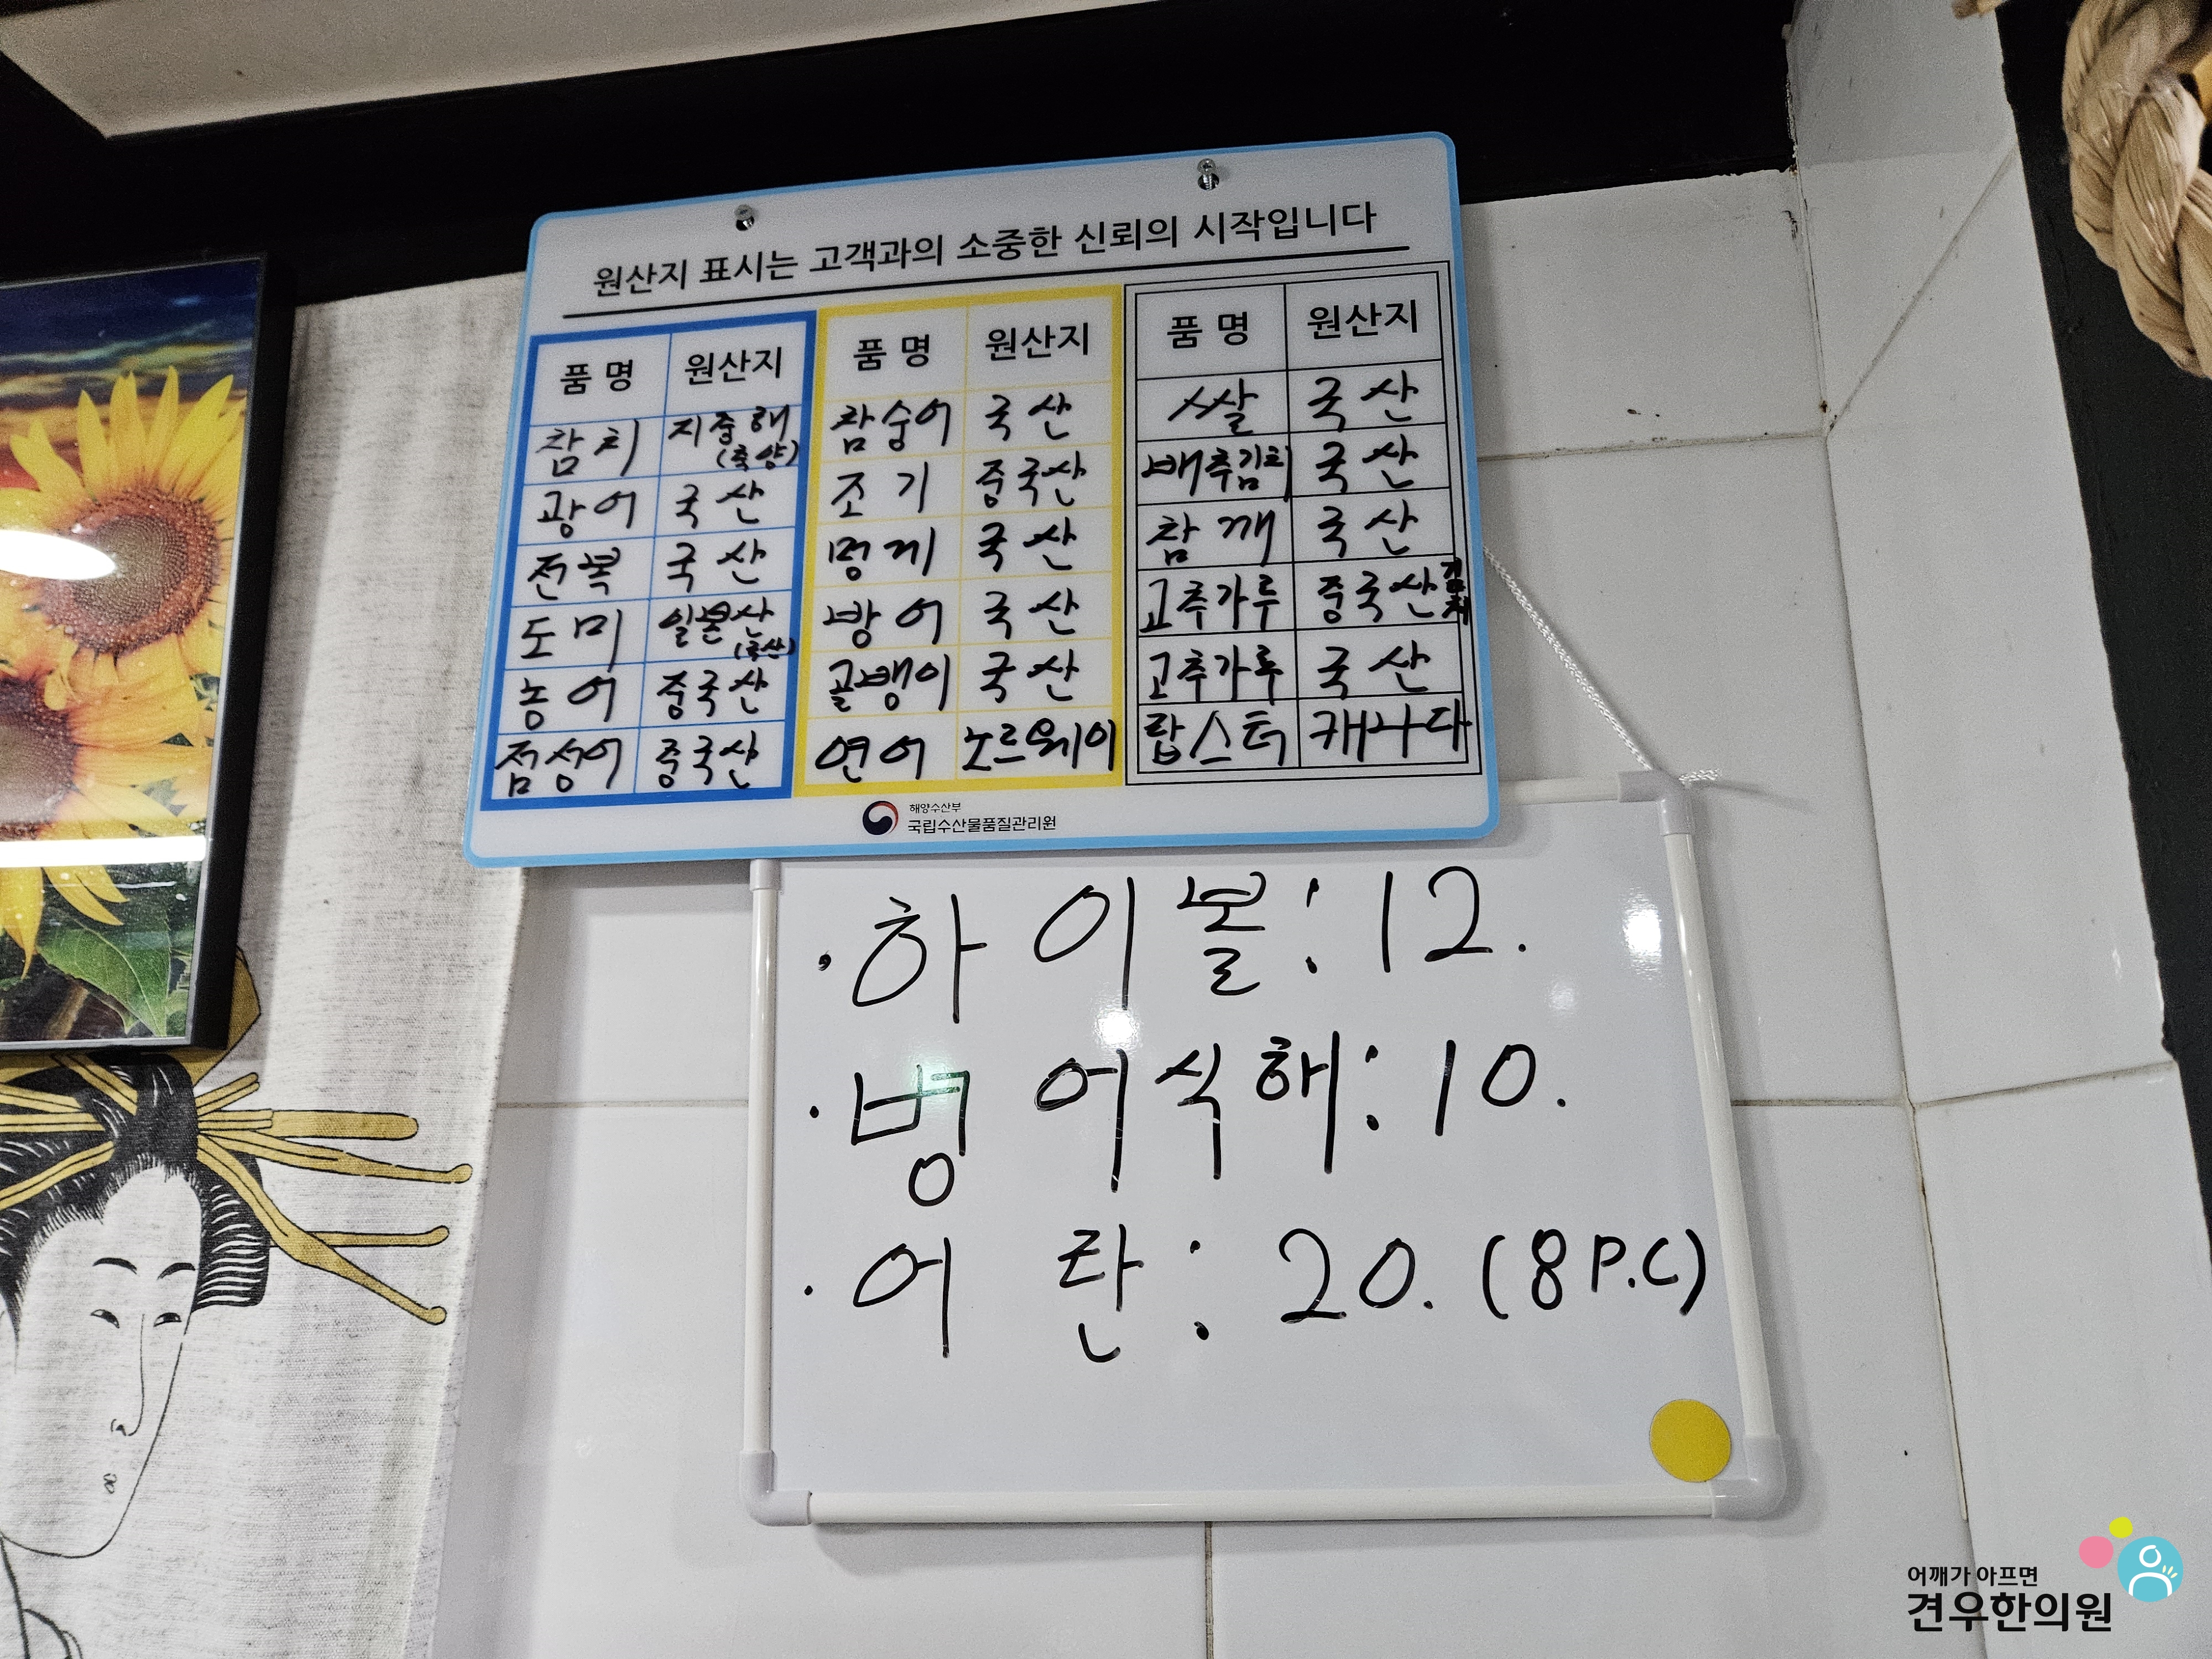 원산지 표시는 고객과의 소중한 신뢰의 시작입니다
품 명 원산지
참치 지중해
(축양)
광어 국산
전복 국산
도미 일본산
농어 중국산
점성어 중국산
품 명 원산지
참숭어 국산
조기 중국산
멍게 국산
방어 국산
골뱅이 국산
연어 노르웨이
품 명 원산지
쌀 국산
배추김치 국산
참깨 국산
고추가루 중국산
고추가루 국산
랍스터 캐나다
해양수산부
국립수산물품질관리원
·하이볼:12.
·병어식해:10.
·어란:20.(8P.C)
어깨가 아프면
견우한의원